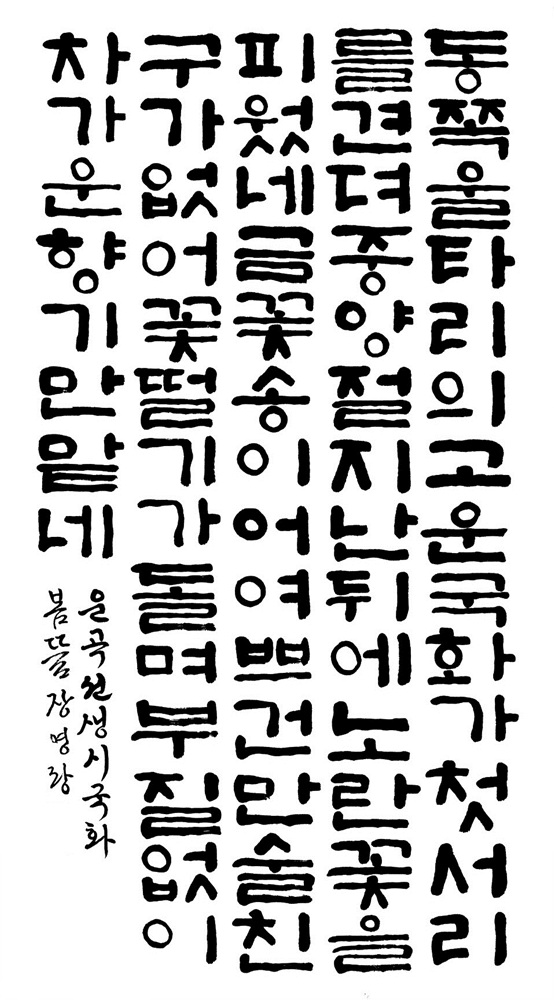 동쪽울타리의고운국화가첫서리
를견뎌중양절지난뒤에노란꽃을
피웠네금꽃송이어여쁘건만술친
구가없어꽃떨기가돌며부질없이
차가운향기만맡네
운곡선생시국화
봄뜰장명랑